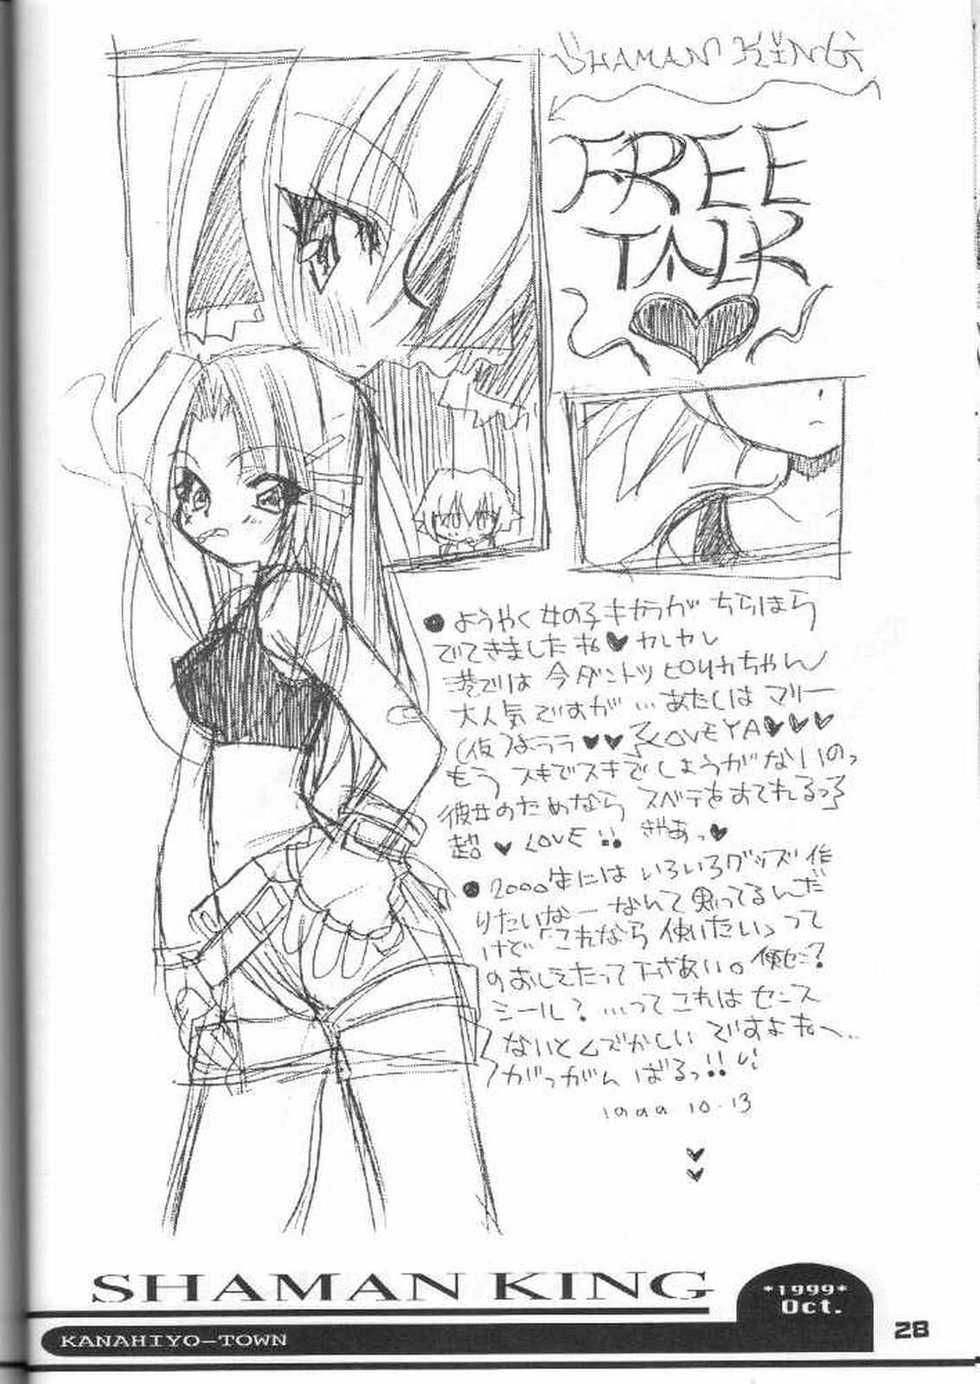 SHAMAN KING
FREE
TALK
●ようやく女の子キャラが ちらほら
でてきましたね♥ カレカレ
港では 今ダントツ ピリカちゃん
大人気ですが…あたしは マリー
(仮)よララ♥♥ LOVEYA♥♥♥
もう スキでスキで しょうがないのっ
彼女のためなら スベテをすてれるっ
超♥LOVE!! ぎゃあっ♥
●2000年には いろいろグッズ作
りたいなー なんて思ってるんだ
けど「これなら 使いたい」って
のおしえたって下さあい。便せン?
シール? …ってこれは センス
ないと ムズかしい ですよねへ..
がっがん ばるっ!!
1999 10.13
SHAMAN KING
*1999*
Oct.
KANAHIYO-TOWN
28